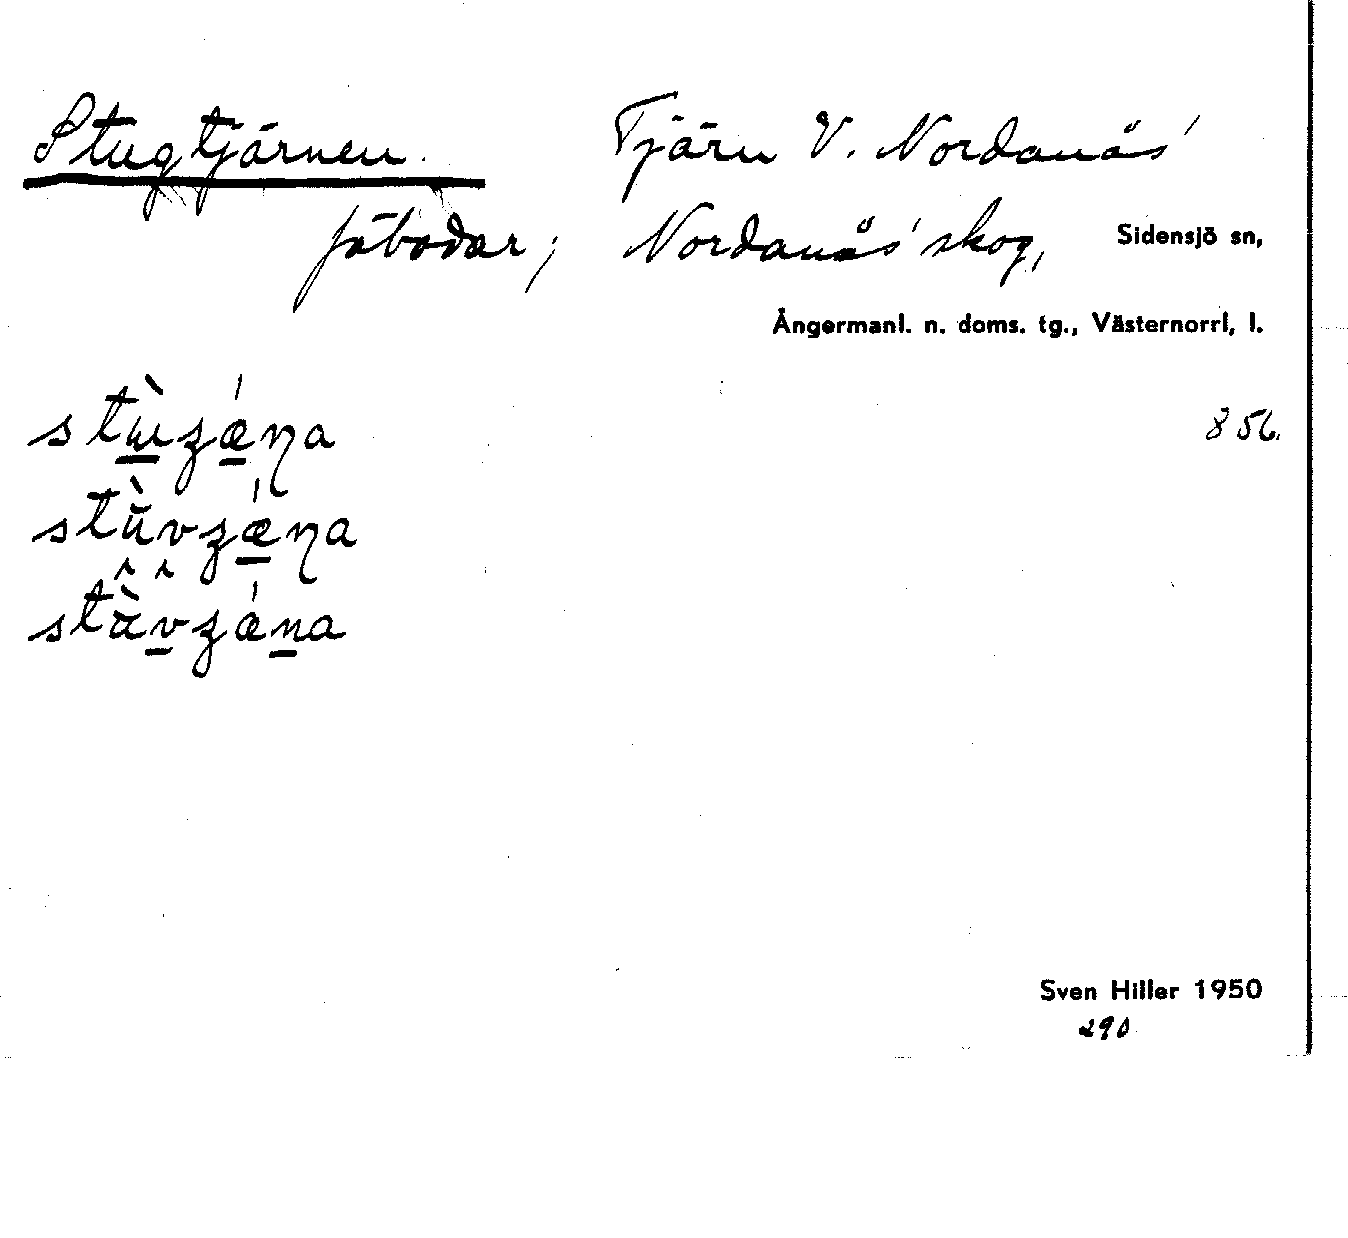 Stugtjärnen. Tjärn V. Nordanås'
fäbodar; Nordanås' skog, Sidensjö sn,
Ångermanl. n. doms. tg., Västernorrl. l.
856.
Sven Hiller 1950
290